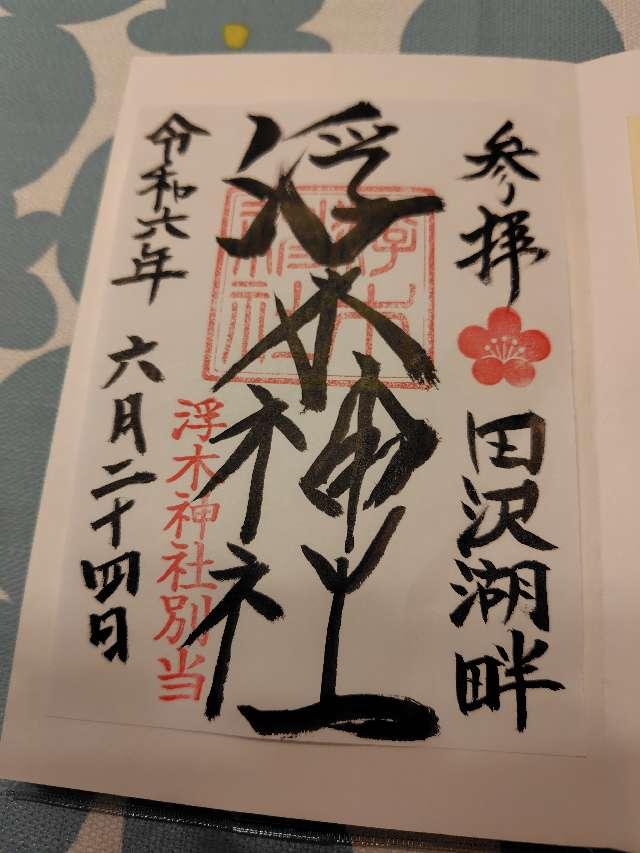 参拝
田沢湖畔
浮木神社
浮木神社
浮木神社別当
令和六年 六月二十四日